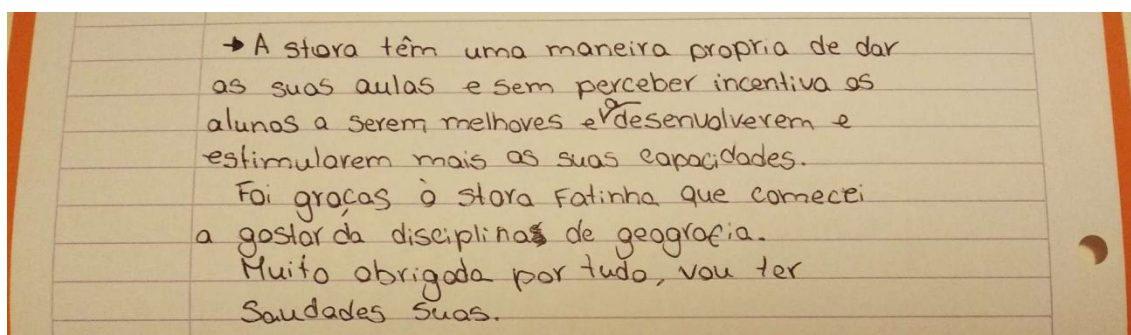 → A stora têm uma maneira propria de dar
as suas aulas e sem perceber incentiva os
alunos a serem melhores e a desenvolverem e
estimularem mais as suas capacidades.
Foi graças à stora Fatinha que comecei
a gostar da disciplina de geografia.
Muito obrigada por tudo, vou ter
Saudades Suas.